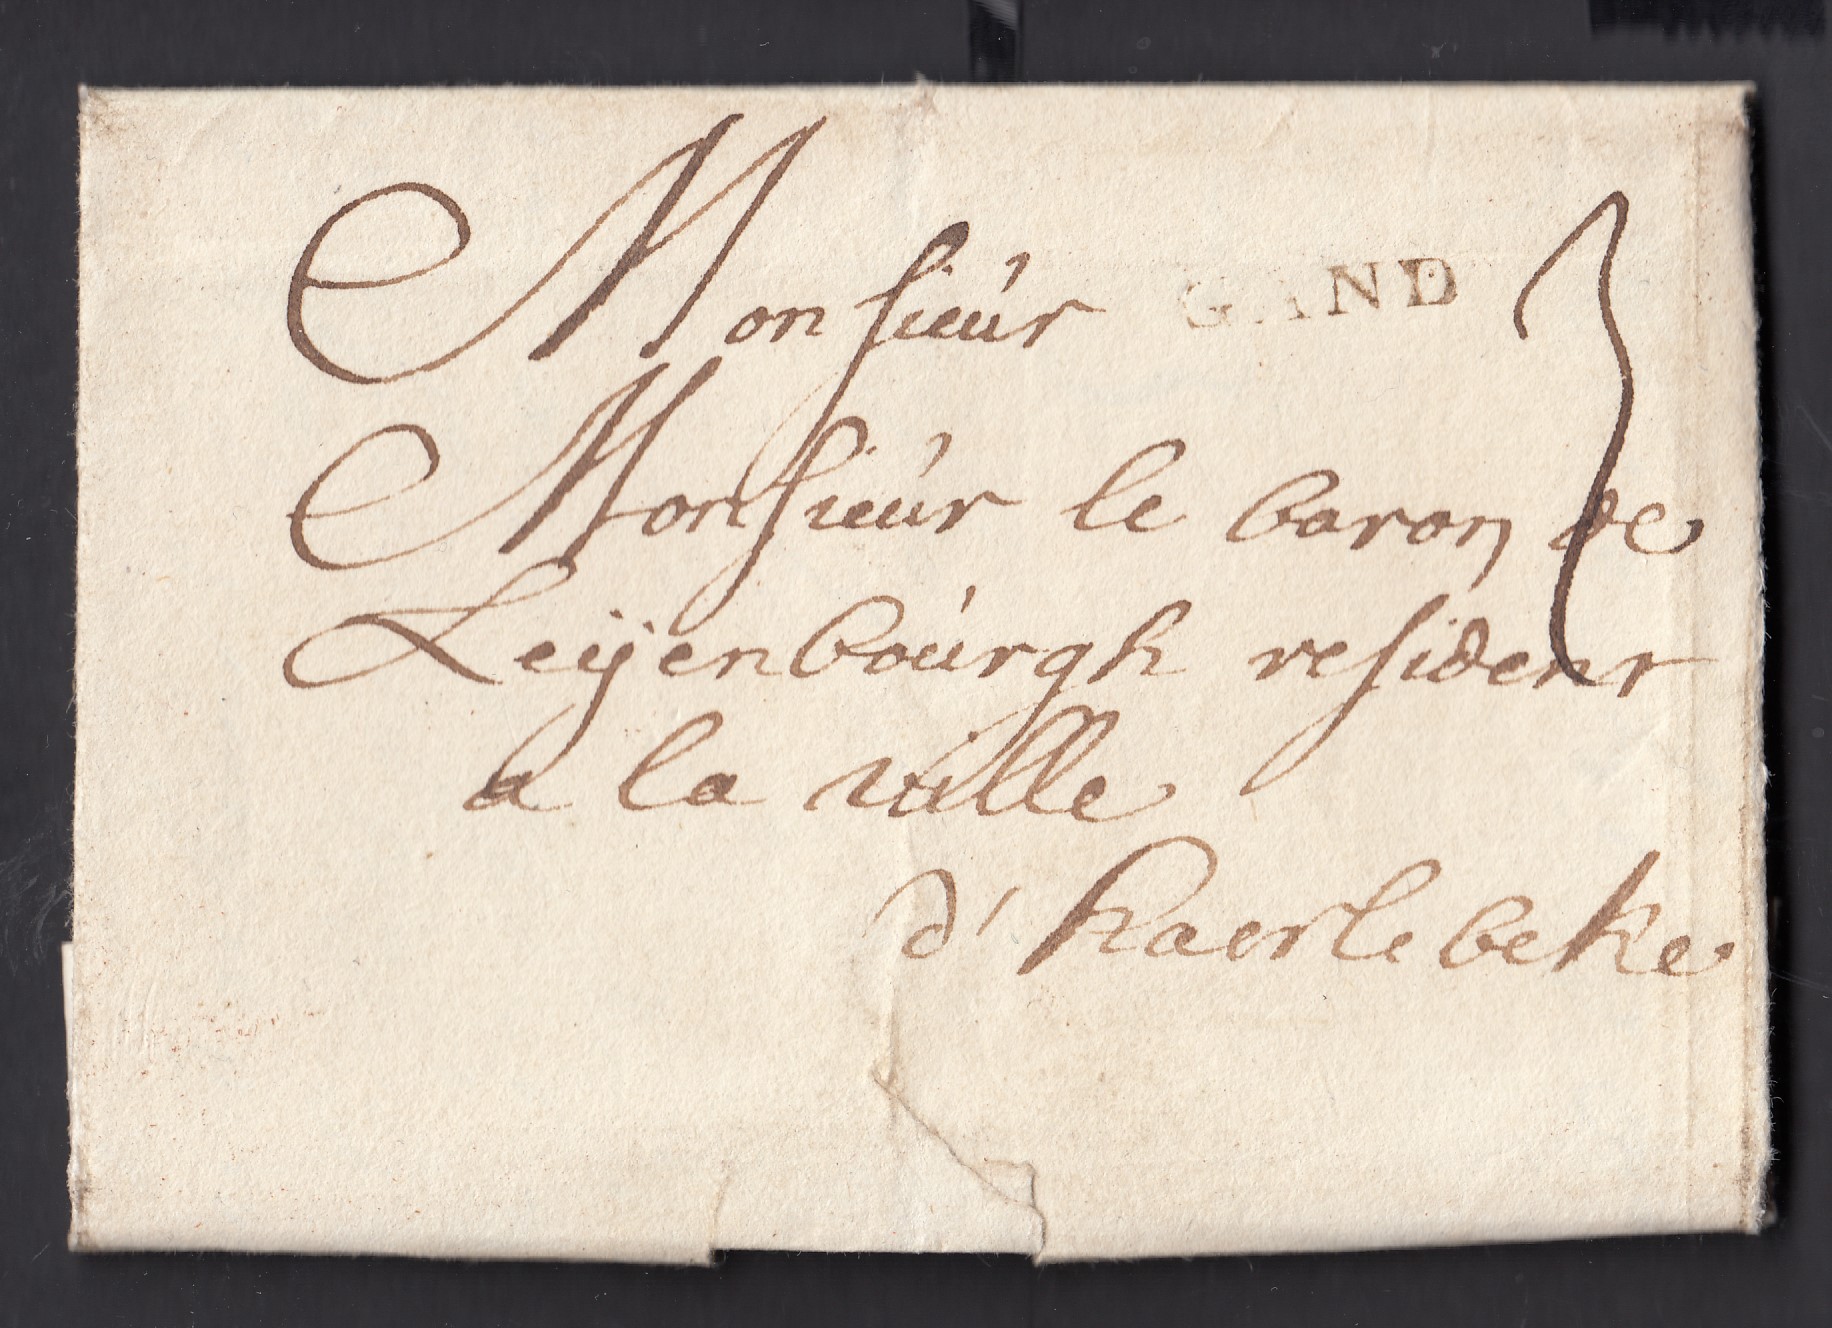 Monsieur GAND 3
Monsieur le baron de
Leÿenbourgh resident
a la ville
d'haerlebeke